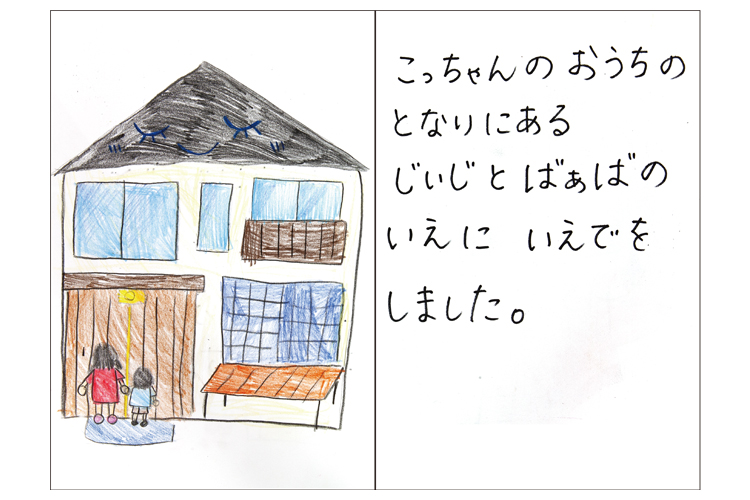 こっちゃんの おうちの
となりにある
じぃじと ばぁばの
いえに いえでを
しました。